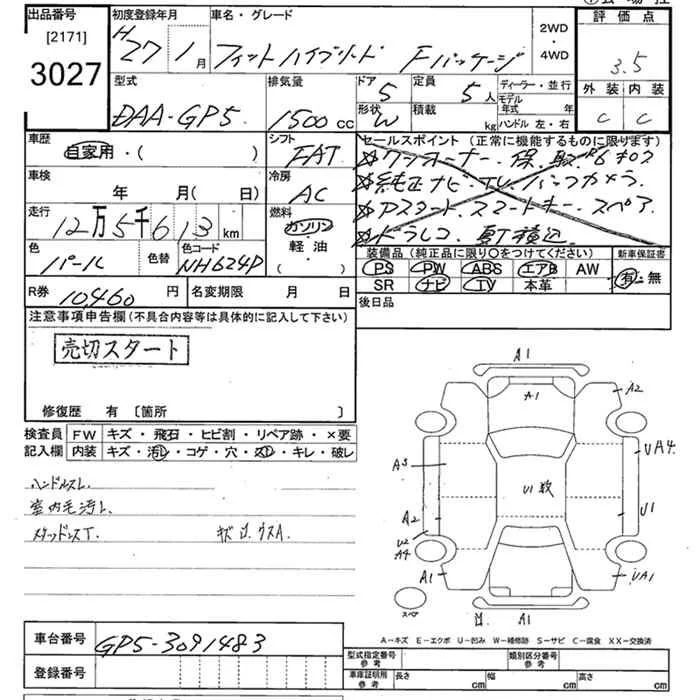 出品番号
[2171]
3027
初度登録年月
H27 1月
車名・グレード
フィットハイブリード Fパッケージ
2WD
・
4WD
評価点
3.5
外装 内装
C C
型式
DAA-GP5
排気量
1500cc
ドア
5
定員
5人
形状
W
積載
kg
ディーラー・並行
モデル年式 年
ハンドル 左・右
車歴
自家用・( )
シフト
FAT
セールスポイント (正常に機能するものに限ります)
☆ワンオーナー. 保. 取
☆純正ナビ. TV. バックカメラ.
☆アスタート. スマートキー. スペア.
☆ドラレコ.
車検
年 月( 日)
冷房
AC
走行
12万5千613km
燃料
ガソリン
・
軽油
( )
色
パール
色替
色コード
NH624P
装備品 (純正品に限り〇をつけてください)
新車保証書
PS PW ABS エアB AW
SR ナビ TV 本革
有・無
R券 10460円
名変期限 月 日
後日品
注意事項申告欄(不具合内容等は具体的に記入して下さい)
売切スタート
修復歴 有 〔箇所 〕
検査員記入欄
FW キズ・飛石・ヒビ割・リペア跡・×要
内装 キズ・汚レ・コゲ・穴・スレ・キレ・破レ
ハンドルスレ
室内毛汚レ
A1
A1
A2
A3
UA4
U1
A2
U1
U2
A4
A1
UA1
A1
スペア
A-キズ E-エクボ U-凹み W-補修跡 S-サビ C-腐食 XX-交換済
車台番号 GP5-3091483
登録番号
型式指定番号
参考
類別区分番号
参考
車庫証明用
参考
長さ cm 幅 cm 高さ cm